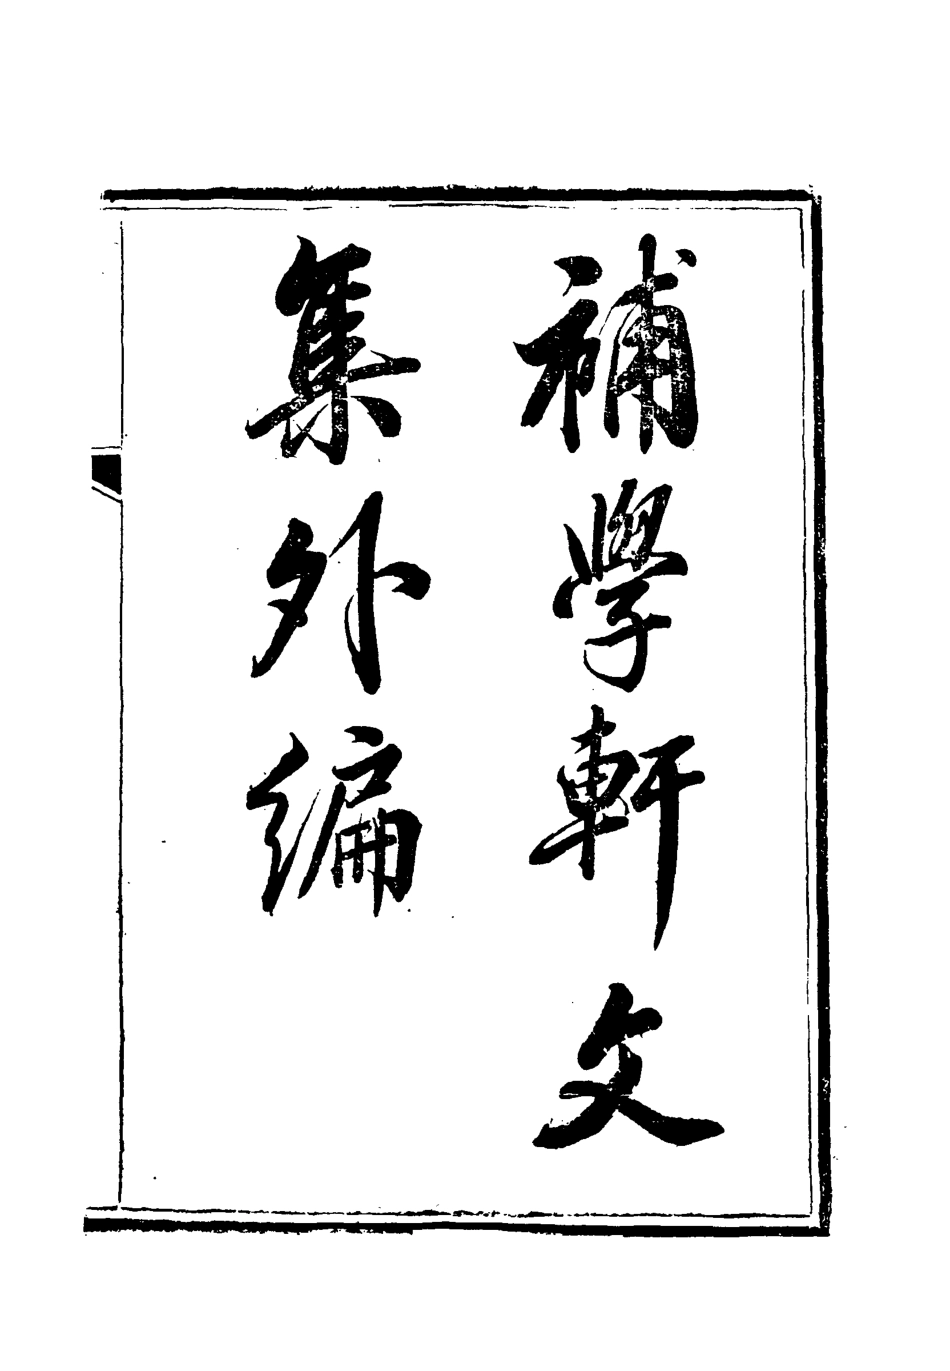 補學軒文
集外編